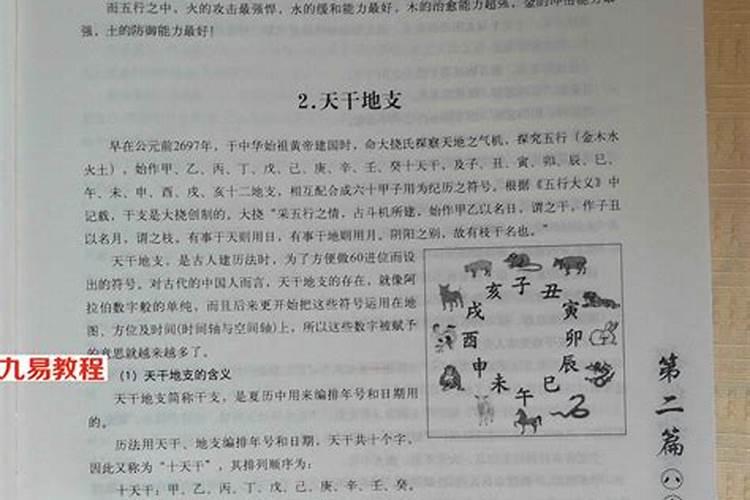 而五行之中，火的攻击最强悍，水的缓和能力最好，木的治愈能力超强，金的冲击能力最
强，土的防御能力最好！
2.天干地支
早在公元前2697年，于中华始祖黄帝建国时，命大挠氏探察天地之气机，探究五行（金木水
火土），始作甲、乙、丙、丁、戊、己、庚、辛、壬、癸十天干，及子、丑、寅、卯、辰、巳、
午、未、申、酉、戌、亥十二地支，相互配合成六十甲子用为纪历之符号。根据《五行大义》中
记载，干支是大挠创制的。大挠“采五行之情，占斗机所建，始作甲乙以名日，谓之干，作子丑
以名月，谓之枝。有事于天则用日，有事于地则用月。阴阳之别，故有枝干名也。”
天干地支，是古人建历法时，为了方便做60进位而设
出的符号。对古代的中国人而言，天干地支的存在，就像阿
拉伯数字般的单纯，而且后来更开始把这些符号运用在地
图、方位及时间(时间轴与空间轴)上，所以这些数字被赋予
的意思就越来越多了。
亥 子 丑
戌 寅
酉 卯
申 辰
未 午 巳
九易教程
（1）天干地支的含义
天干地支简称干支，是夏历中用来编排年号和日期用
的。
历法用天干、地支编排年号和日期，天干共十个字，
因此又称为“十天干”，其排列顺序为：
十天干：甲、乙、丙、丁、戊、己、庚、辛、壬、癸。
第二篇
八